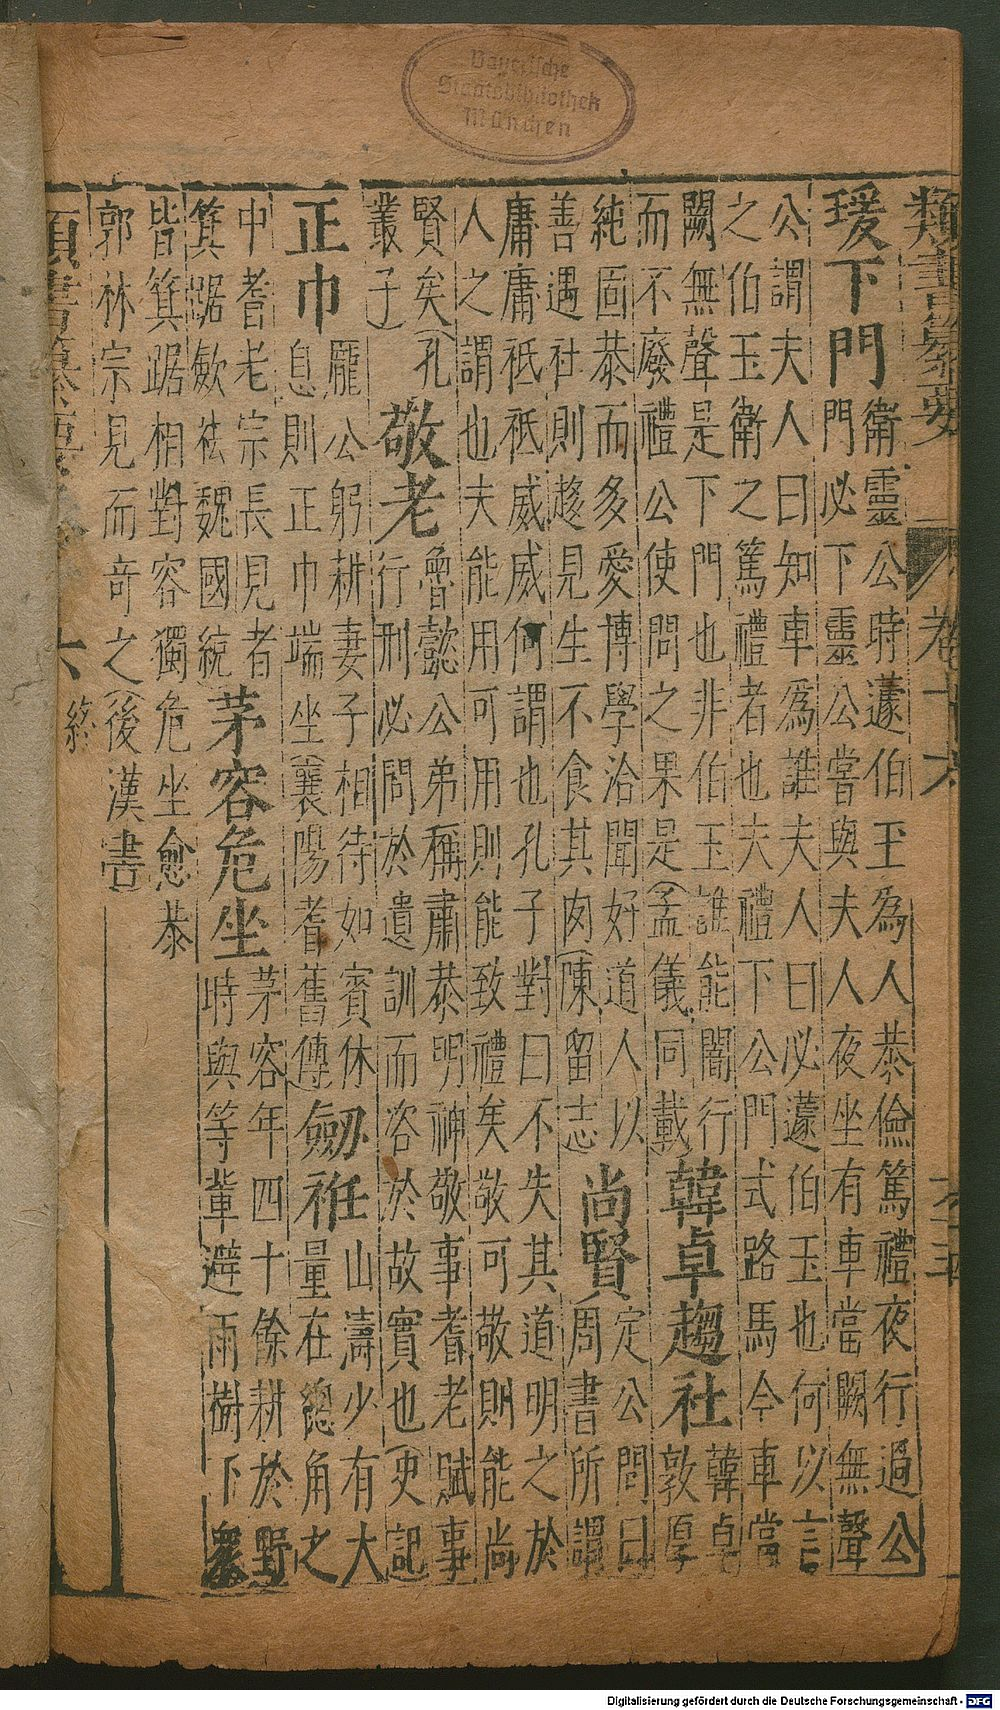 類書纂要 卷十六
瑗下門
衛靈公時蘧伯玉為人恭儉篤禮夜行過公
門必下靈公嘗與夫人夜坐有車當闕無聲
公謂夫人曰知車為誰夫人曰必蘧伯玉也何以言
之伯玉衛之篤禮者也夫禮下公門式路馬今車當
闕無聲是下門也非伯玉誰能闇行
而不廢禮公使問之果是(孟儀同載
韓卓趨社
韓卓
敦厚
純固恭而多愛博學洽聞好道人以
善遇社則趍見生不食其肉(陳留志
尚賢
定公問曰
周書所謂
庸庸祗祗威威何謂也孔子對曰不失其道明之於
人之謂也夫能用可用則能致禮矣敬可敬則能尚
賢矣(孔
叢子)
敬老
魯懿公弟稱肅恭明神敬事耆老賦事
行刑必問於遺訓而咨於故實也(史記
正巾
龐公躬耕妻子相待如賓休
息則正巾端坐(襄陽耆舊傳
劒袵
山濤少有大
量在總角之
中耆老宗長見者
箕踞歛袪魏國統
茅容危坐
茅容年四十餘耕於野
時與等輩避雨樹下衆
皆箕踞相對容獨危坐愈恭
郭林宗見而奇之(後漢書
類書纂要 六終
Bayerische
Staatsbibliothek
München
Digitalisierung gefördert durch die Deutsche Forschungsgemeinschaft - DFG